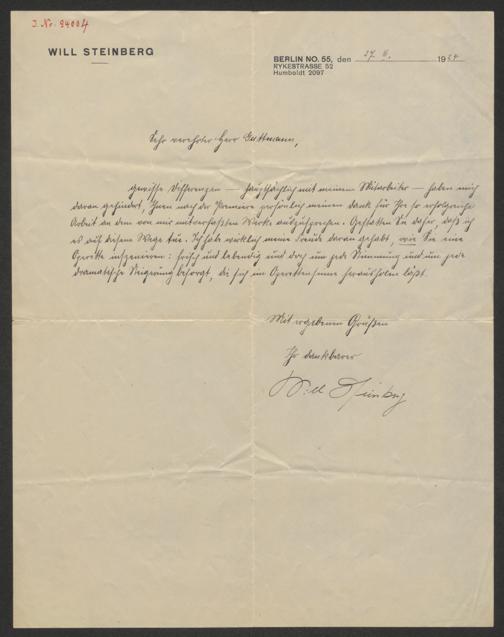 J. Nr. 94004
WILL STEINBERG
BERLIN NO. 55, den 27. II. 1924
RYKESTRASSE 52
Humboldt 2097
Sehr verehrter Herr Guttmann,
gewisse Differenzen — hauptsächlich mit meinem Mitarbeiter — haben mich
daran gehindert, Ihnen nach der Premiere persönlich meinen Dank für Ihre so erfolgreiche
Arbeit an dem von mir mitverfaßten Werke auszusprechen. Gestatten Sie daher, daß ich
es auf diesem Wege tue. Ich habe wirklich meine Freude daran gehabt, wie Sie eine
Operette inszenieren: frisch und lebendig und doch um jede Stimmung und um jede
dramatische Steigerung besorgt, die sich im Operettensinne herausholen läßt.
Mit ergebenen Grüßen
Ihr dankbarer
Will Steinberg